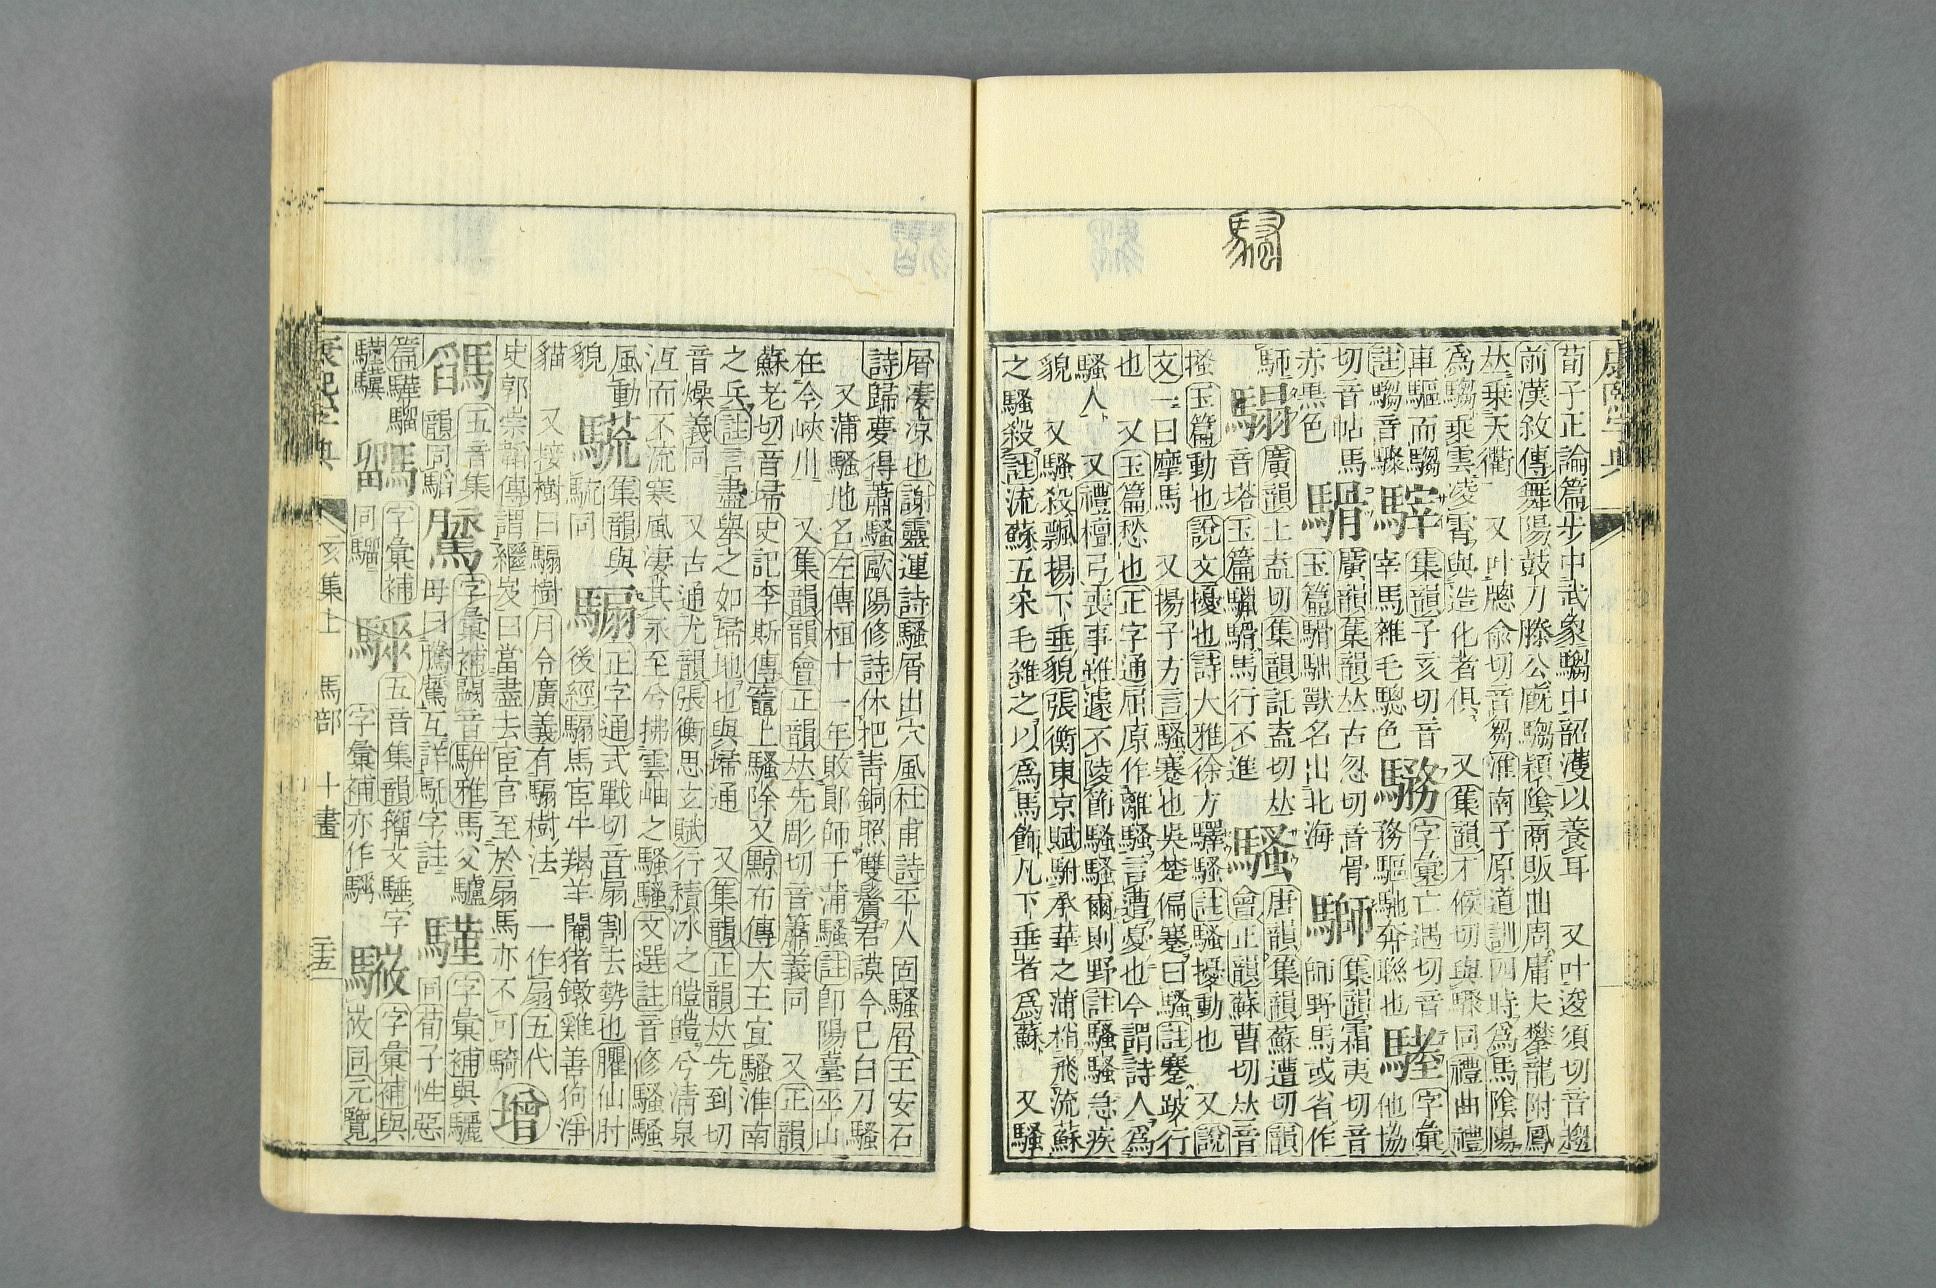 荀子正論篇步中武象騶中韶濩以養耳　又叶逡須切音趨
前漢敘傳舞陽鼓刀滕公廐騶潁隂商販曲周庸夫攀龍附鳳
𠀤乗天衢　又叶牕兪切音芻淮南子原道訓四時爲馬隂陽
爲騶乗雲凌霄與造化者俱　又集韻才候切與驟同禮曲禮
車驅而騶　集韻子亥切音　字彙亡遇切音　字彙
註騶音驟　宰馬雜毛驄色　務驅馳奔　也　他協
切音帖馬　廣韻集韻𠀤古忽切音骨　集韻霜夷切音
赤黑色　玉篇　獸名出北海　師野馬或省作
廣韻土盍切集韻託盍切𠀤　騷　唐韻集韻蘇遭切韻
音塔玉篇　馬行不進　會正韻蘇曹切𠀤音
搔玉篇動也說文擾也詩大雅徐方繹騷註騷擾動也　又說
文一曰摩馬　又揚子方言騷蹇也吳楚偏蹇曰騷註蹇跛行
也　又玉篇愁也正字通屈原作離騷言遭憂也今謂詩人爲
騷人　又禮檀弓喪事雖遽不陵節騷騷爾則野註騷騷急疾
貌　又騷殺飄揚下垂貌張衡東京賦駙承華之蒲梢飛流蘇
之騷殺註流蘇五采毛雜之以爲馬飾凡下垂者爲蘇　又騷
屑凄涼也謝靈運詩騷屑出穴風杜甫詩平人固騷屑王安石
詩歸夢得蕭騷歐陽修詩休把靑銅照雙鬢君謨今已白刀騷
又蒲騷地名左傳桓十一年敗鄖師于蒲騷註鄖陽臺巫山
在今峽川　又集韻韻會正韻𠀤先彫切音簫義同　又正韻
蘇老切音埽史記李斯傳竈上騷除又黥布傳大王宜騷淮南
之兵註言盡舉之如埽地也與埽通　又集韻正韻𠀤先到切
音燥義同　又古通尤韻張衡思玄賦行積冰之皚皚兮清泉
沍而不流寒風淒其永至兮拂雲岫之騷騷文選註音修騷騷
風動　集韻與　騸　正字通式戰切音扇割去勢也臞仙肘
貌　同　後經騸馬宦牛羯羊閹猪鐓雞善狗淨
貓　又接樹曰騸樹月令廣義有騸樹法　一作扇五代
史郭崇韜傳謂繼岌曰當盡去宦官至於扇馬亦不可騎　增
五音集　字彙補　音　雅馬父驢　字彙補與驪
韻同　母曰騰駕互詳　字註　同荀子性惡
篇驊騮　字彙補　五音集韻籀文騄字　字彙補與
驥　同騮　字彙補亦作　同元覽
康熙字典　亥集上　馬部　十畫　二十五